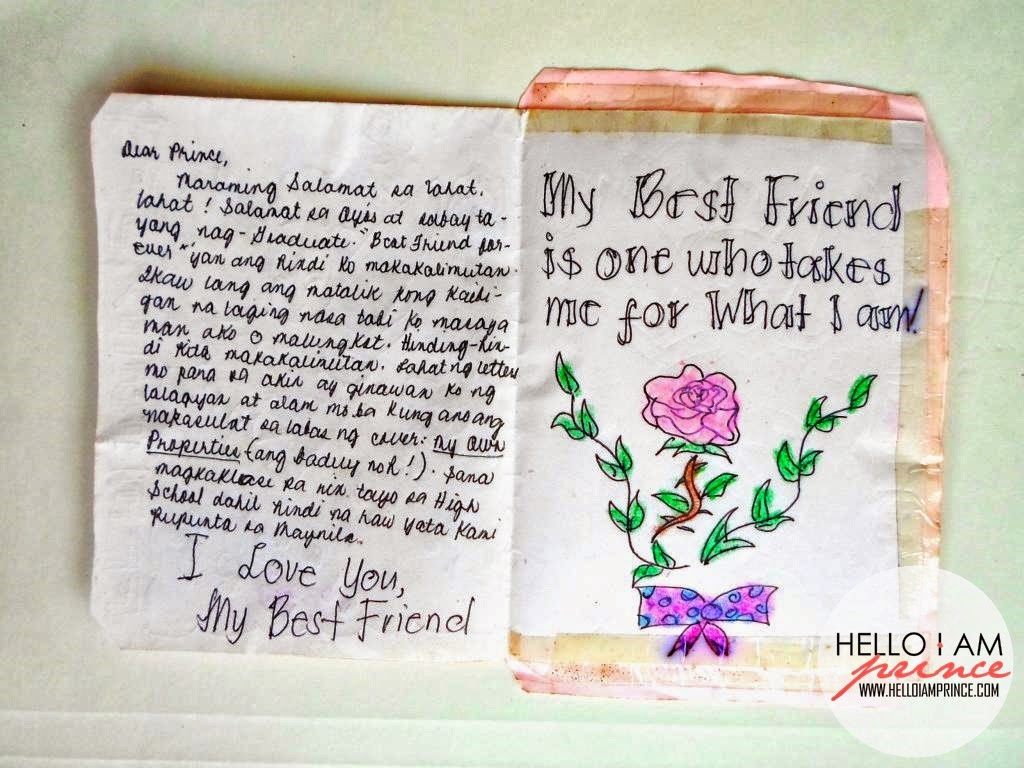 Dear Prince,
Maraming Salamat sa lahat,
lahat! Salamat sa Ayos at sabay ta-
yang nag-Graduate. "Best Friend for-
ever" 'yan ang hindi ko makakalimutan.
Ikaw lang ang matalik kong kaibi-
gan na laging nasa tabi ko masaya
man ako o malungkot. Hinding-hin-
di kita makakalimutan. Lahat ng letters
mo para sa akin ay ginawan ko ng
lalagyan at alam mo ba kung ano ang
nakasulat sa labas ng cover: My Own
Properties (ang baduy noh!). Sana
magkaklase pa rin tayo sa High
School dahil hindi na raw yata kami
pupunta sa Maynila.
I Love You,
My Best Friend
My Best Friend
is one who takes
me for What I am!
HELLO I AM
prince
WWW.HELLOIAMPRINCE.COM